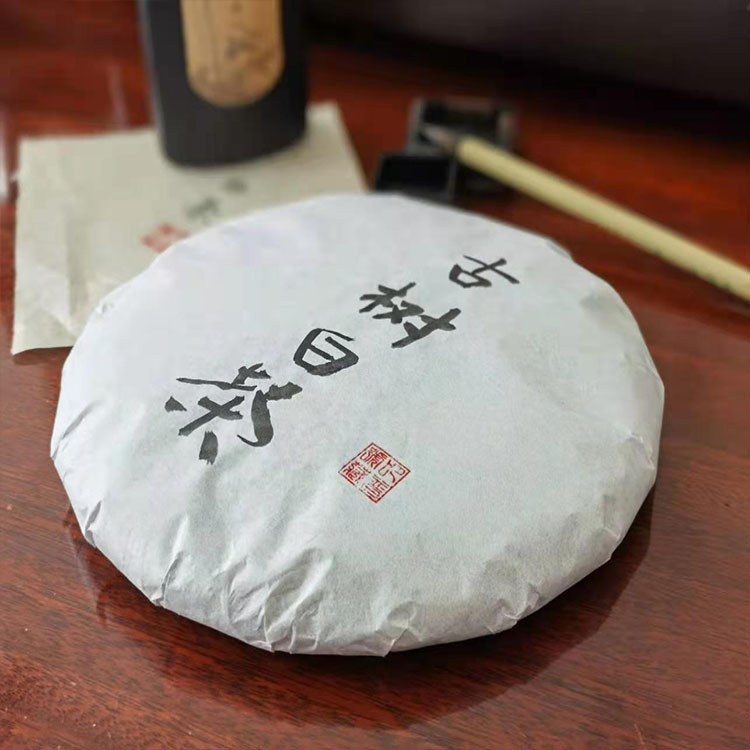 古树白茶